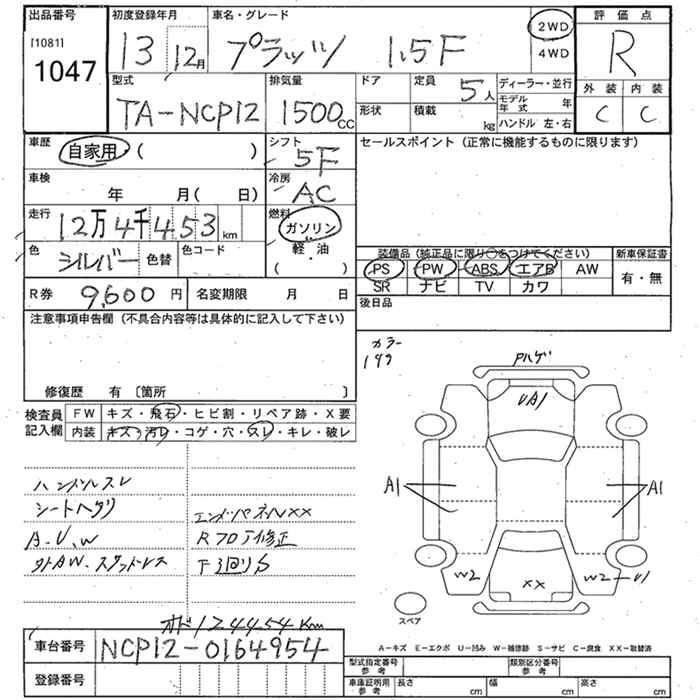 出品番号 初度登録年月 車名・グレード 評価点
[1081]
1047
13 12月 プラッツ 1.5F 2WD 4WD R
型式 排気量 ドア 定員 5人 ディーラー・並行 外装 内装
TA-NCP12 1500cc 形状 積載 kg モデル年式 年 C C
ハンドル 左・右
車歴 自家用 ( ) シフト 5F セールスポイント (正常に機能するものに限ります)
車検 年 月 ( 日) 冷房 AC
走行 12万4千453km 燃料 ガソリン
色 シルバー 色替 色コード 軽・油 ( ) 装備品 (純正品に限り○をつけてください) 新車保証書
PS PW ABS エアB AW 有・無
R券 9,600円 名変期限 月 日 SR ナビ TV カワ
注意事項申告欄 (不具合内容等は具体的に記入して下さい) 後日品
カラー
199
修復歴 有 〔箇所 〕
検査員記入欄 FW キズ・飛石・ヒビ割・リペア跡・X要
内装 キズ・汚レ・コゲ・穴・スレ・キレ・破レ
Pハゲ
UA1
A1 A1
W2 XX W2-U1
スペア
ハンドルスレ
シートヘタリ エンドパネルXX
A-U.W Rフロア修正
外AW.スタッドレス 下廻りS
オド124454km
車台番号 NCP12-0164954
A-キズ E-エクボ U-凹み W-補修跡 S-サビ C-腐食 XX-取替済
登録番号 型式指定番号 参考 類別区分番号 参考
車庫証明用 参考 長さ cm 幅 cm 高さ cm